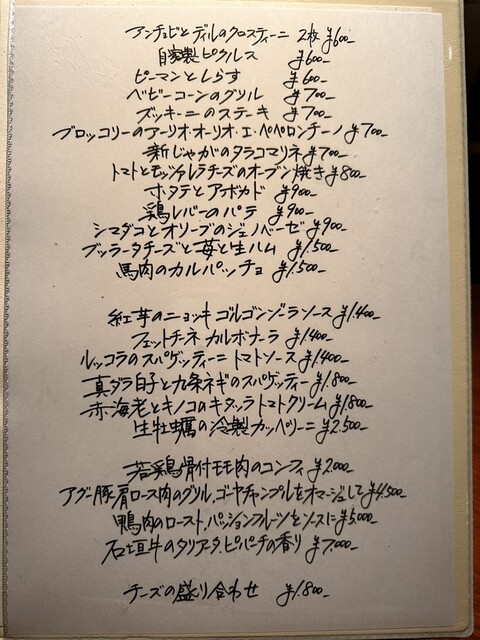 アンチョビとディルのクロスティーニ 2枚 ¥600-
自家製ピクルス ¥600-
ピーマンとしらす ¥600-
ベビーコーンのグリル ¥700-
ズッキーニのステーキ ¥700-
ブロッコリーのアーリオ・オーリオ・エ・ペペロンチーノ ¥700-
新じゃがのタラコマリネ ¥700-
トマトとモッツァレラチーズのオーブン焼き ¥800-
ホタテとアボカド ¥900-
鶏レバーのパテ ¥900-
シマダコとオリーブのジェノベーゼ ¥900-
ブッラータチーズと苺と生ハム ¥1,500-
馬肉のカルパッチョ ¥1,500-
紅芋のニョッキ ゴルゴンゾーラソース ¥1,400-
フェットチーネ カルボナーラ ¥1,400-
ルッコラのスパゲッティーニ トマトソース ¥1,400-
真ダラ白子と九条ネギのスパゲッティー ¥1,800-
赤海老とキノコのキタッラ トマトクリーム ¥1,800-
生牡蠣の冷製カッペリーニ ¥2,500-
若鶏骨付モモ肉のコンフィ ¥2,000-
アグー豚肩ロース肉のグリル、ゴーヤチャンプルをオマージュして ¥4,500-
鴨肉のロースト、パッションフルーツをソースに ¥5,000-
石垣牛のタリアータ、ピパーチの香り ¥7,000-
チーズの盛り合わせ ¥1,800-